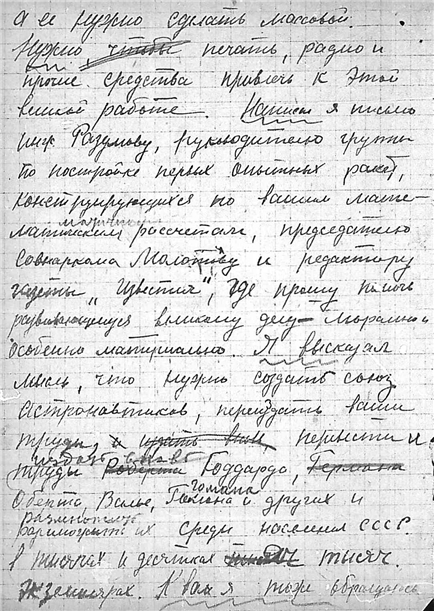 а ее нужно сделать массовой.
Нужно чтобы печать, радио и
прочие средства привлечь к этой
великой работе. Написал я письмо
инж Разумову, руководителю группы
по постройке первых опытных ракет,
конструирующихся по вашим мате-
матическим рассчетам, председателю
совнаркома Молотову и редактору
газеты „Известия", где прошу помочь
развивающемуся великому делу — морально и
особенно материально. Я высказал
мысль, что нужно создать союз
Астронавтиков, переиздать ваши
труды, и перевести и
издать вновь
труды Роберта Годдарда, Германа
Оберта, Валье, Гомана и других и
размножить
их среди населения СССР.
в тысячах и десятках тысяч.
экземплярах. К вам я тоже обращаюсь